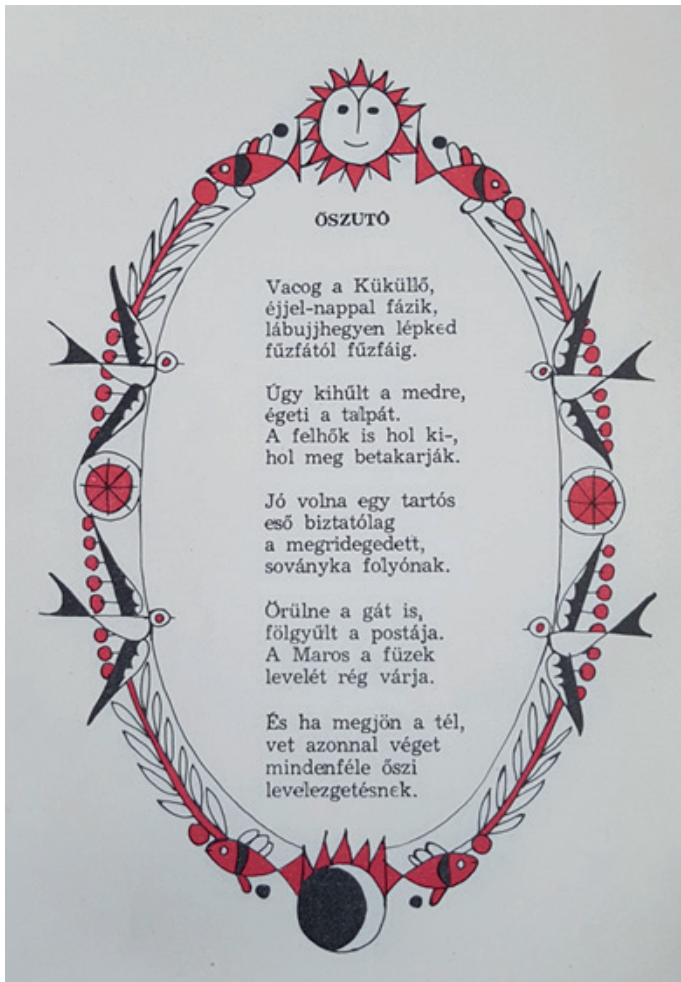 ŐSZUTÓ
Vacog a Küküllő,
éjjel-nappal fázik,
lábujjhegyen lépked
fűzfától fűzfáig.
Úgy kihűlt a medre,
égeti a talpát.
A felhők is hol ki-,
hol meg betakarják.
Jó volna egy tartós
eső biztatólag
a megridegedett,
soványka folyónak.
Örülne a gát is,
fölgyűlt a postája.
A Maros a füzek
levelét rég várja.
És ha megjön a tél,
vet azonnal véget
mindenféle őszi
levelezgetésnek.